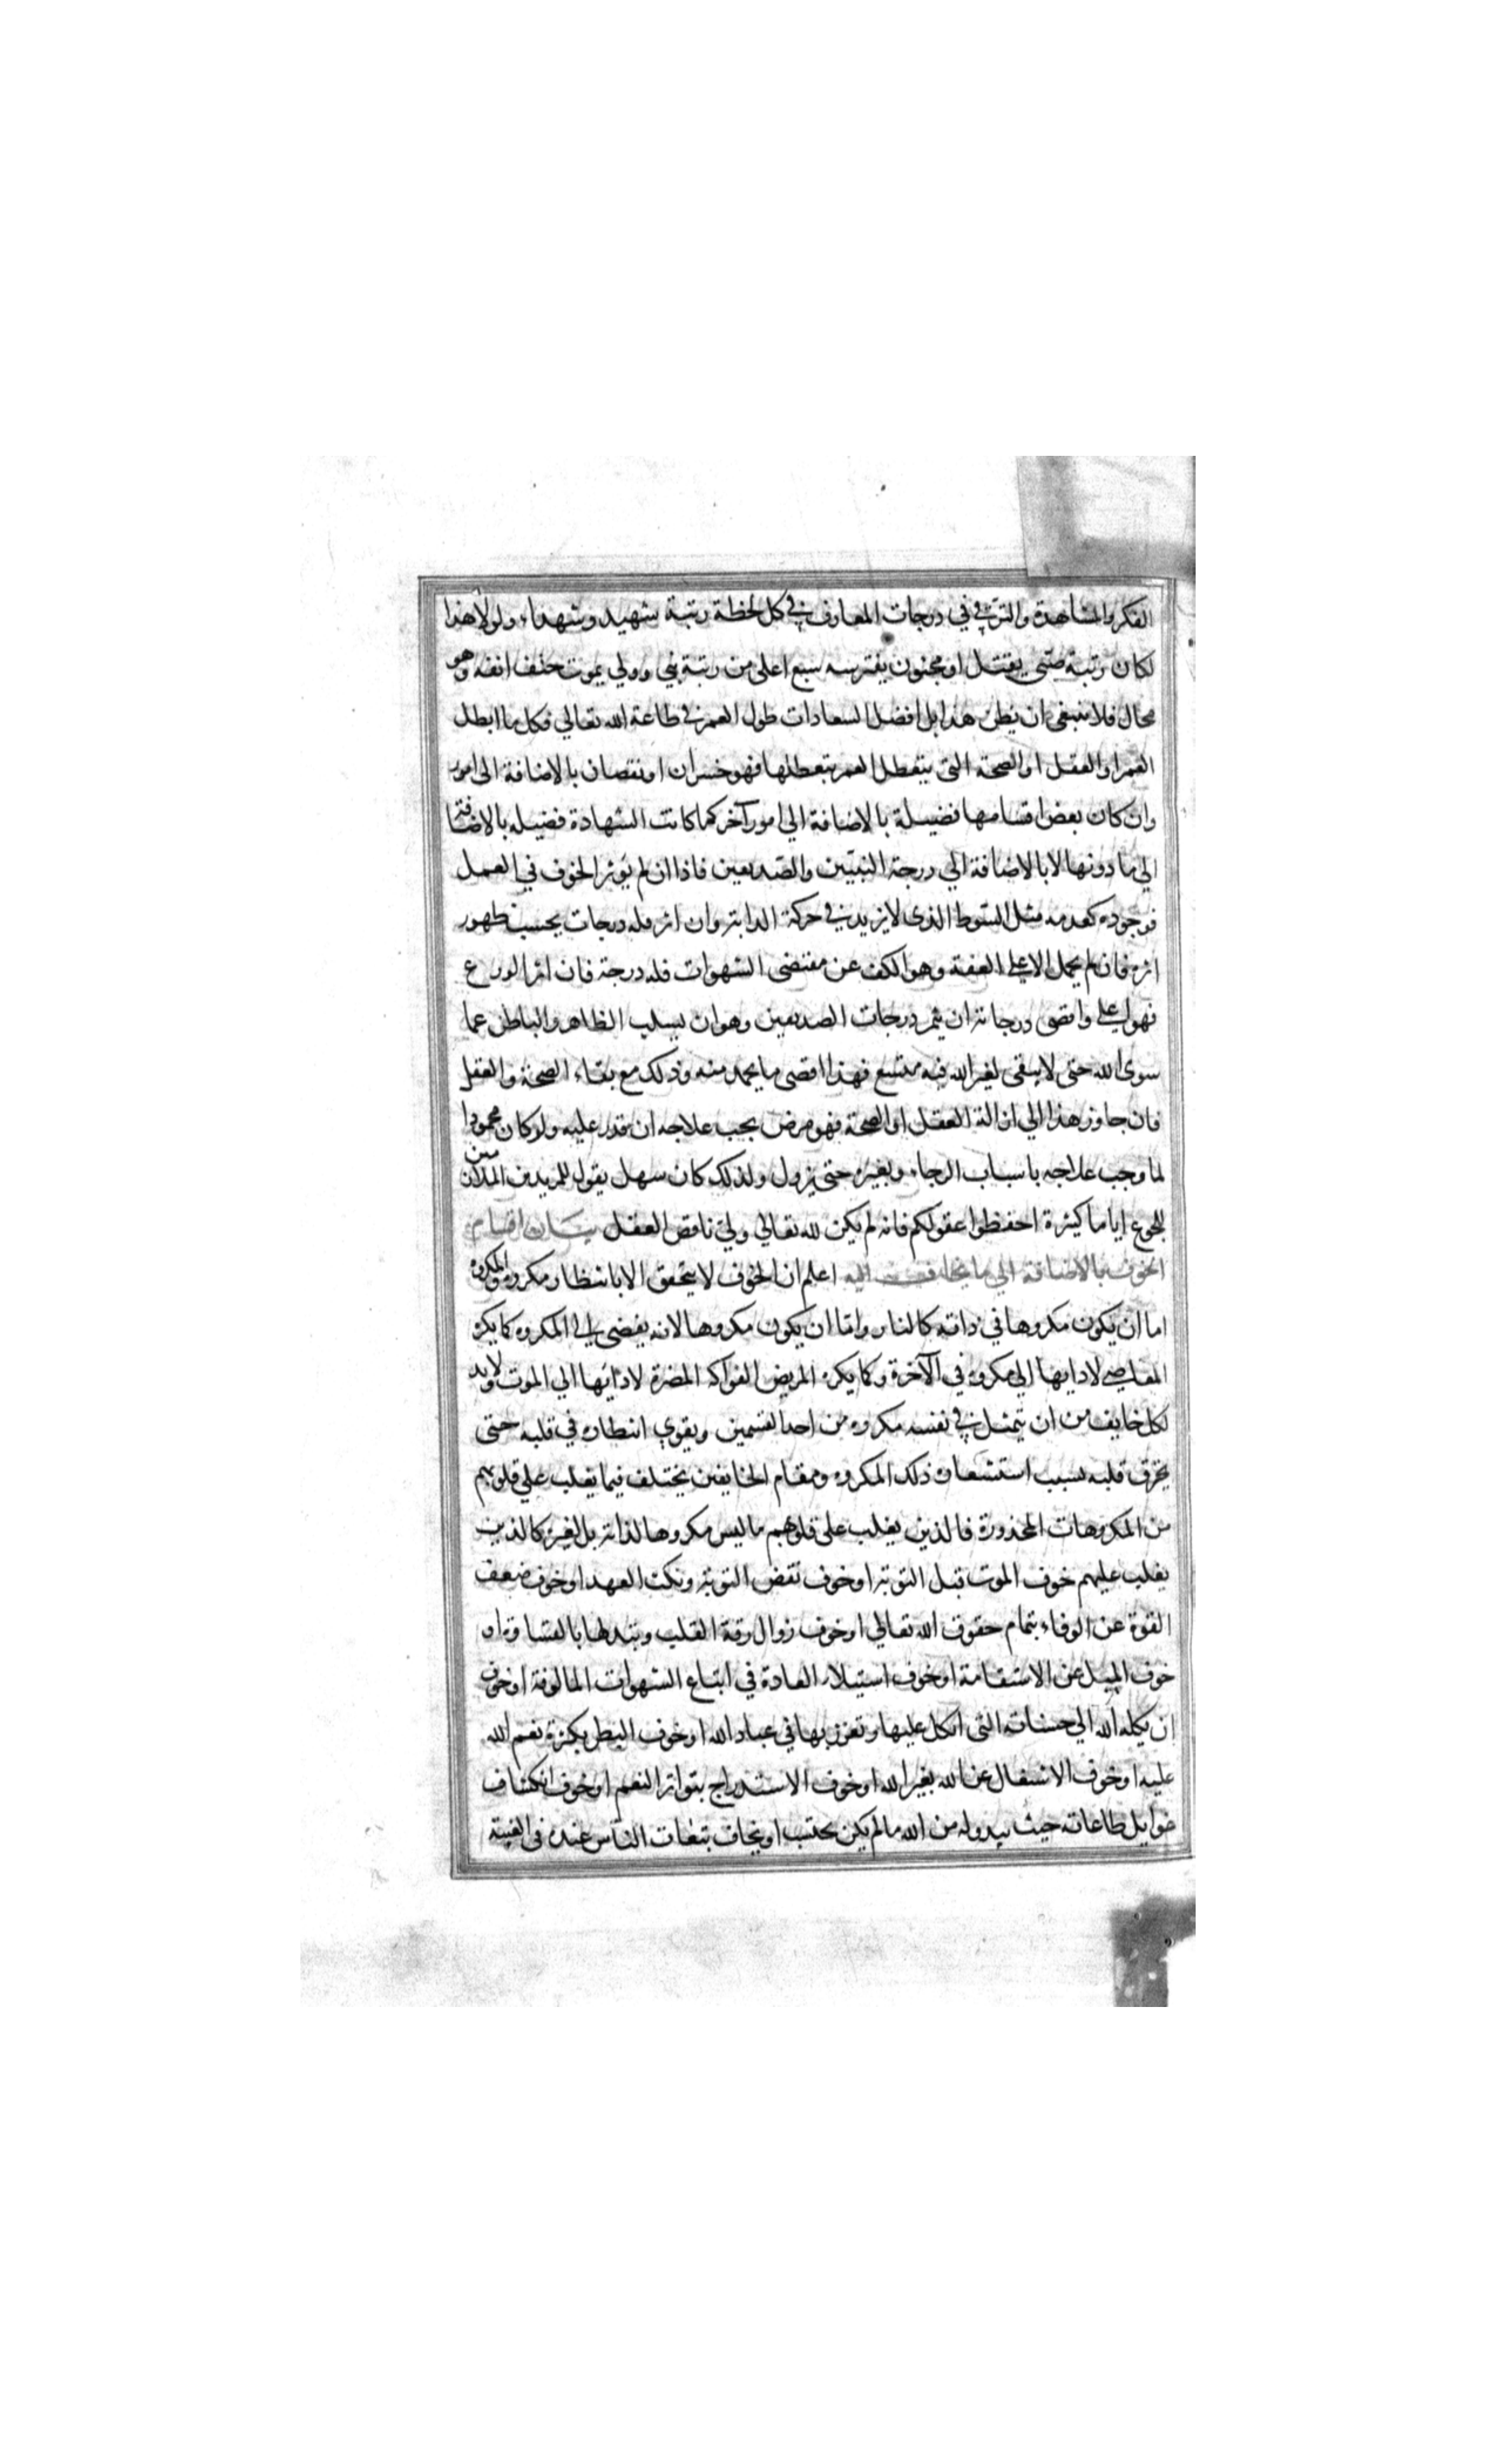 الفكر والمشاهدة والترقي في درجات المعارف في كل لحظة رتبة شهيد وشهداء ولولا هذا
لكان رتبة صبي يقتل او مجنون يفترسه سبع اعلى من رتبة نبي وولي يموت حتف انفه وهو
محال فلا ينبغي ان يظن هذا بل افضل السعادات طول العمر في طاعة الله تعالي فكل ما ابطل
العمر او العقل او الصحة التي يتعطل العمر بتعطلها فهو خسران او نقصان بالاضافة الى امور
وان كان بعض اقسامها فضيلة بالاضافة الي امور آخر كما كانت الشهادة فضيله بالاضافة
الي ما دونها لا بالاضافة الي درجة النبيّين والصّديقين فاذا ان لم يؤثر الخوف في العمل
فوجوده كعدمه مثل السّوط الذي لا يزيد في حركة الدابة وان اثر فله درجات بحسب ظهور
اثره فان لم يحمل الا علي العفة وهو الكف عن مقتضى الشهوات فله درجة فان اثر الورع
فهو اعلي واقصى درجاته ان يثمر درجات الصديقين وهو ان يسلب الظاهر والباطن عما
سوى الله حتى لا يبقى لغير الله فيه متسع فهذا اقصى ما يحمد منه وذلك مع بقاء الصحة والعقل
فان جاوز هذا الي ازالة العقل او الصحة فهو مرض يجب علاجه ان قدر عليه ولو كان محمودا
لما وجب علاجه باسباب الرجاء وبغيره حتى يزول ولذلك كان سهل يقول للمريدين الملازمين
للجوع اياما كثيرة احفظوا عقولكم فانه لم يكن لله تعالي وليّ ناقص العقل بيان اقسام
الخوف بالاضافة الي ما يخاف منه اعلم ان الخوف لا يتحقق الا بانتظار مكروه والمكروه
اما ان يكون مكروها في ذاته كالنار واما ان يكون مكروها لانه يفضى الي المكروه كما يكره
المعاصي لادايها الي مكروه في الآخرة وكما يكره المريض الفواكه المضرة لادائها الي الموت ولابد
لكل خايف من ان يتمثل في نفسه مكروه من احد القسمين ويقوي انتظاره في قلبه حتى
يحرق قلبه بسبب استشعاره ذلك المكروه ومقام الخايفين يختلف فيما يغلب علي قلوبهم
من المكروهات المحذورة فالذين يغلب على قلوبهم ما ليس مكروها لذاته بل لغيره كالذين
يغلب عليهم خوف الموت قبل التوبة او خوف نقض التوبة ونكث العهد او خوف ضعف
القوة عن الوفاء بتمام حقوق الله تعالي او خوف زوال رقة القلب وتبدلها بالقساوة او
خوف الميل عن الاستقامة او خوف استيلاء العادة في اتباع الشهوات المالوفة او خوف
ان يكله الله الي حسناته التي اتكل عليها وتعزز بها في عباد الله او خوف البطر بكثرة نعم الله
عليه او خوف الاشتغال عن الله بغير الله او خوف الاستدراج بتواتر النعم او خوف انكشاف
غوايل طاعاته حيث يبدو له من الله ما لم يكن يحتسب او يخاف تبعات الناس عنده في الغيبة